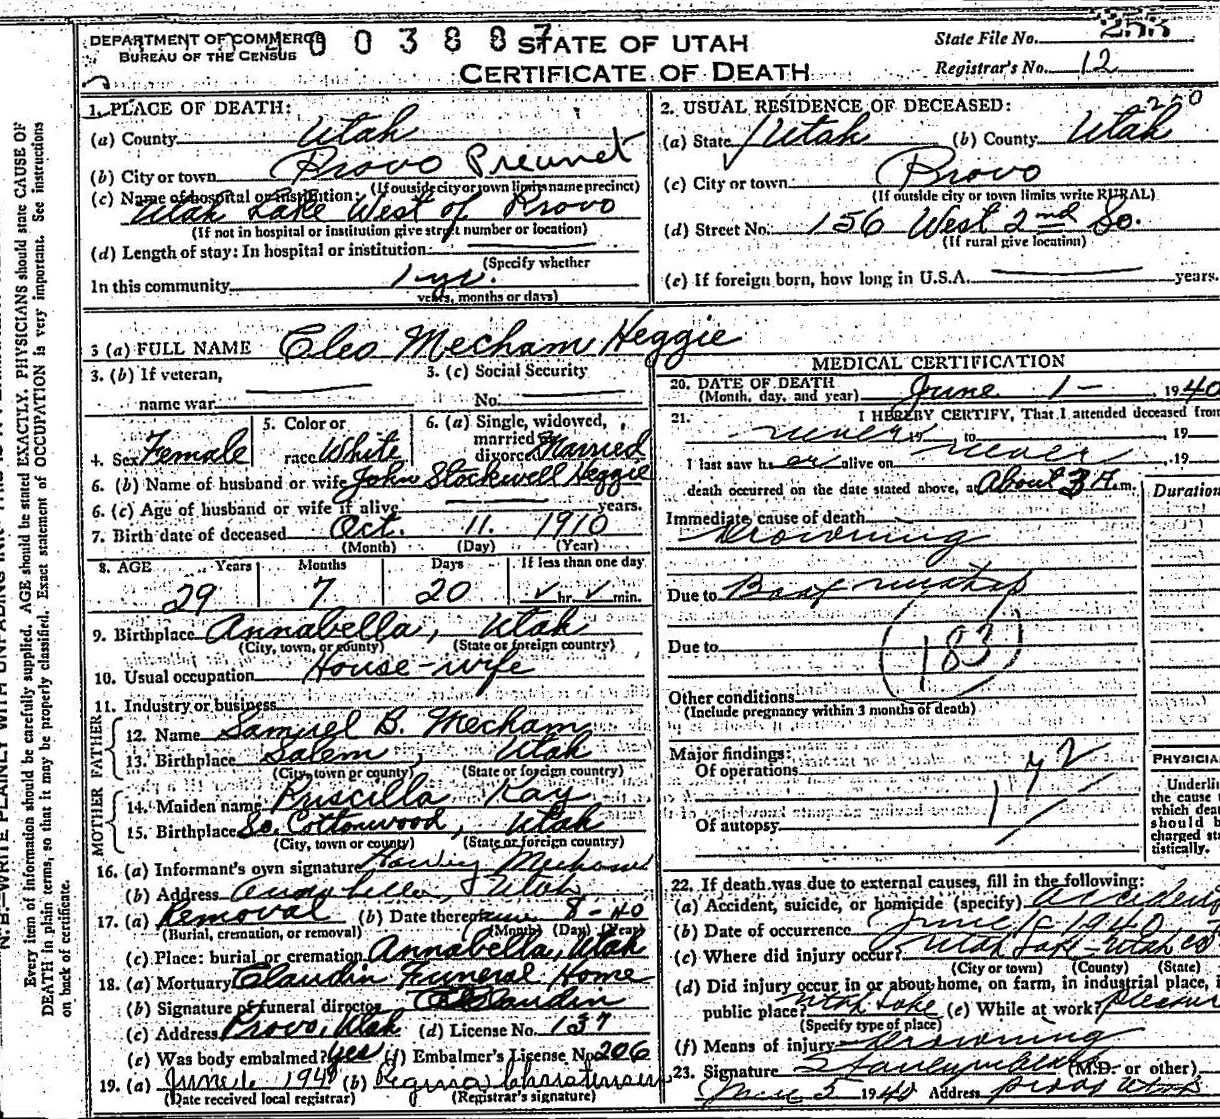 DEPARTMENT OF COMMERCE
BUREAU OF THE CENSUS
003887
STATE OF UTAH
CERTIFICATE OF DEATH
State File No. 253
Registrar's No. 12
1. PLACE OF DEATH:
(a) County Utah
(b) City or town Provo Precinct
(If outside city or town limits name precinct)
(c) Name of hospital or institution:
Utah Lake West of Provo
(If not in hospital or institution give street number or location)
(d) Length of stay: In hospital or institution
(Specify whether
In this community 1 yr.
years, months or days)
2. USUAL RESIDENCE OF DECEASED:
(a) State Utah (b) County Utah
(c) City or town Provo
(If outside city or town limits write RURAL)
(d) Street No. 156 West 2nd So.
(If rural give location)
(e) If foreign born, how long in U.S.A. years.
3 (a) FULL NAME Cleo Mecham Heggie
3. (b) If veteran,
name war
3. (c) Social Security
No.
4. Sex Female
5. Color or
race White
6. (a) Single, widowed,
married
divorced Married
6. (b) Name of husband or wife John Stockwell Heggie
6. (c) Age of husband or wife if alive years.
7. Birth date of deceased Oct. 11. 1910
(Month) (Day) (Year)
8. AGE Years Months Days If less than one day
29 7 20 hr. min.
9. Birthplace Annabella, Utah
(City, town, or county) (State or foreign country)
10. Usual occupation House-wife
11. Industry or business
FATHER
12. Name Samuel B. Mecham
13. Birthplace Salem, Utah
(City, town or county) (State or foreign country)
MOTHER
14. Maiden name Priscilla Kay
15. Birthplace So. Cottonwood, Utah
(City, town or county) (State or foreign country)
16. (a) Informant's own signature Mecham
(b) Address Annabella, Utah
17. (a) Removal (b) Date thereof June 8-40
(Burial, cremation, or removal) (Month) (Day) (Year)
(c) Place: burial or cremation Annabella, Utah
18. (a) Mortuary Claudin Funeral Home
(b) Signature of funeral director Claudin
(c) Address Provo, Utah (d) License No. 137
(e) Was body embalmed? Yes (f) Embalmer's License No. 206
19. (a) June 1940 (b) Regina Christensen
(Date received local registrar) (Registrar's signature)
MEDICAL CERTIFICATION
20. DATE OF DEATH
(Month, day, and year) June 1- 1940
21. I HEREBY CERTIFY, That I attended deceased from
never to , 19
I last saw her alive on never, 19
death occurred on the date stated above, at About 3 A.m.
Duration
Immediate cause of death
Drowning
Due to Boat mishap
Due to
183
Other conditions
(Include pregnancy within 3 months of death)
Major findings:
Of operations
Of autopsy
PHYSICIA
Underli
the cause
which dea
should b
charged st
tistically.
22. If death was due to external causes, fill in the following:
(a) Accident, suicide, or homicide (specify) Accident
(b) Date of occurrence June 1 - 1940
(c) Where did injury occur? Utah Lake - Utah Co
(City or town) (County) (State)
(d) Did injury occur in or about home, on farm, in industrial place, i
public place? Utah Lake (e) While at work? pleasur
(Specify type of place)
(f) Means of injury Drowning
23. Signature (M.D. or other)
June 5 1940 Address Provo Utah
Every item of information should be carefully supplied. AGE should be stated EXACTLY. PHYSICIANS should state CAUSE OF
DEATH in plain terms, so that it may be properly classified. Exact statement of OCCUPATION is very important. See instructions
on back of certificate.